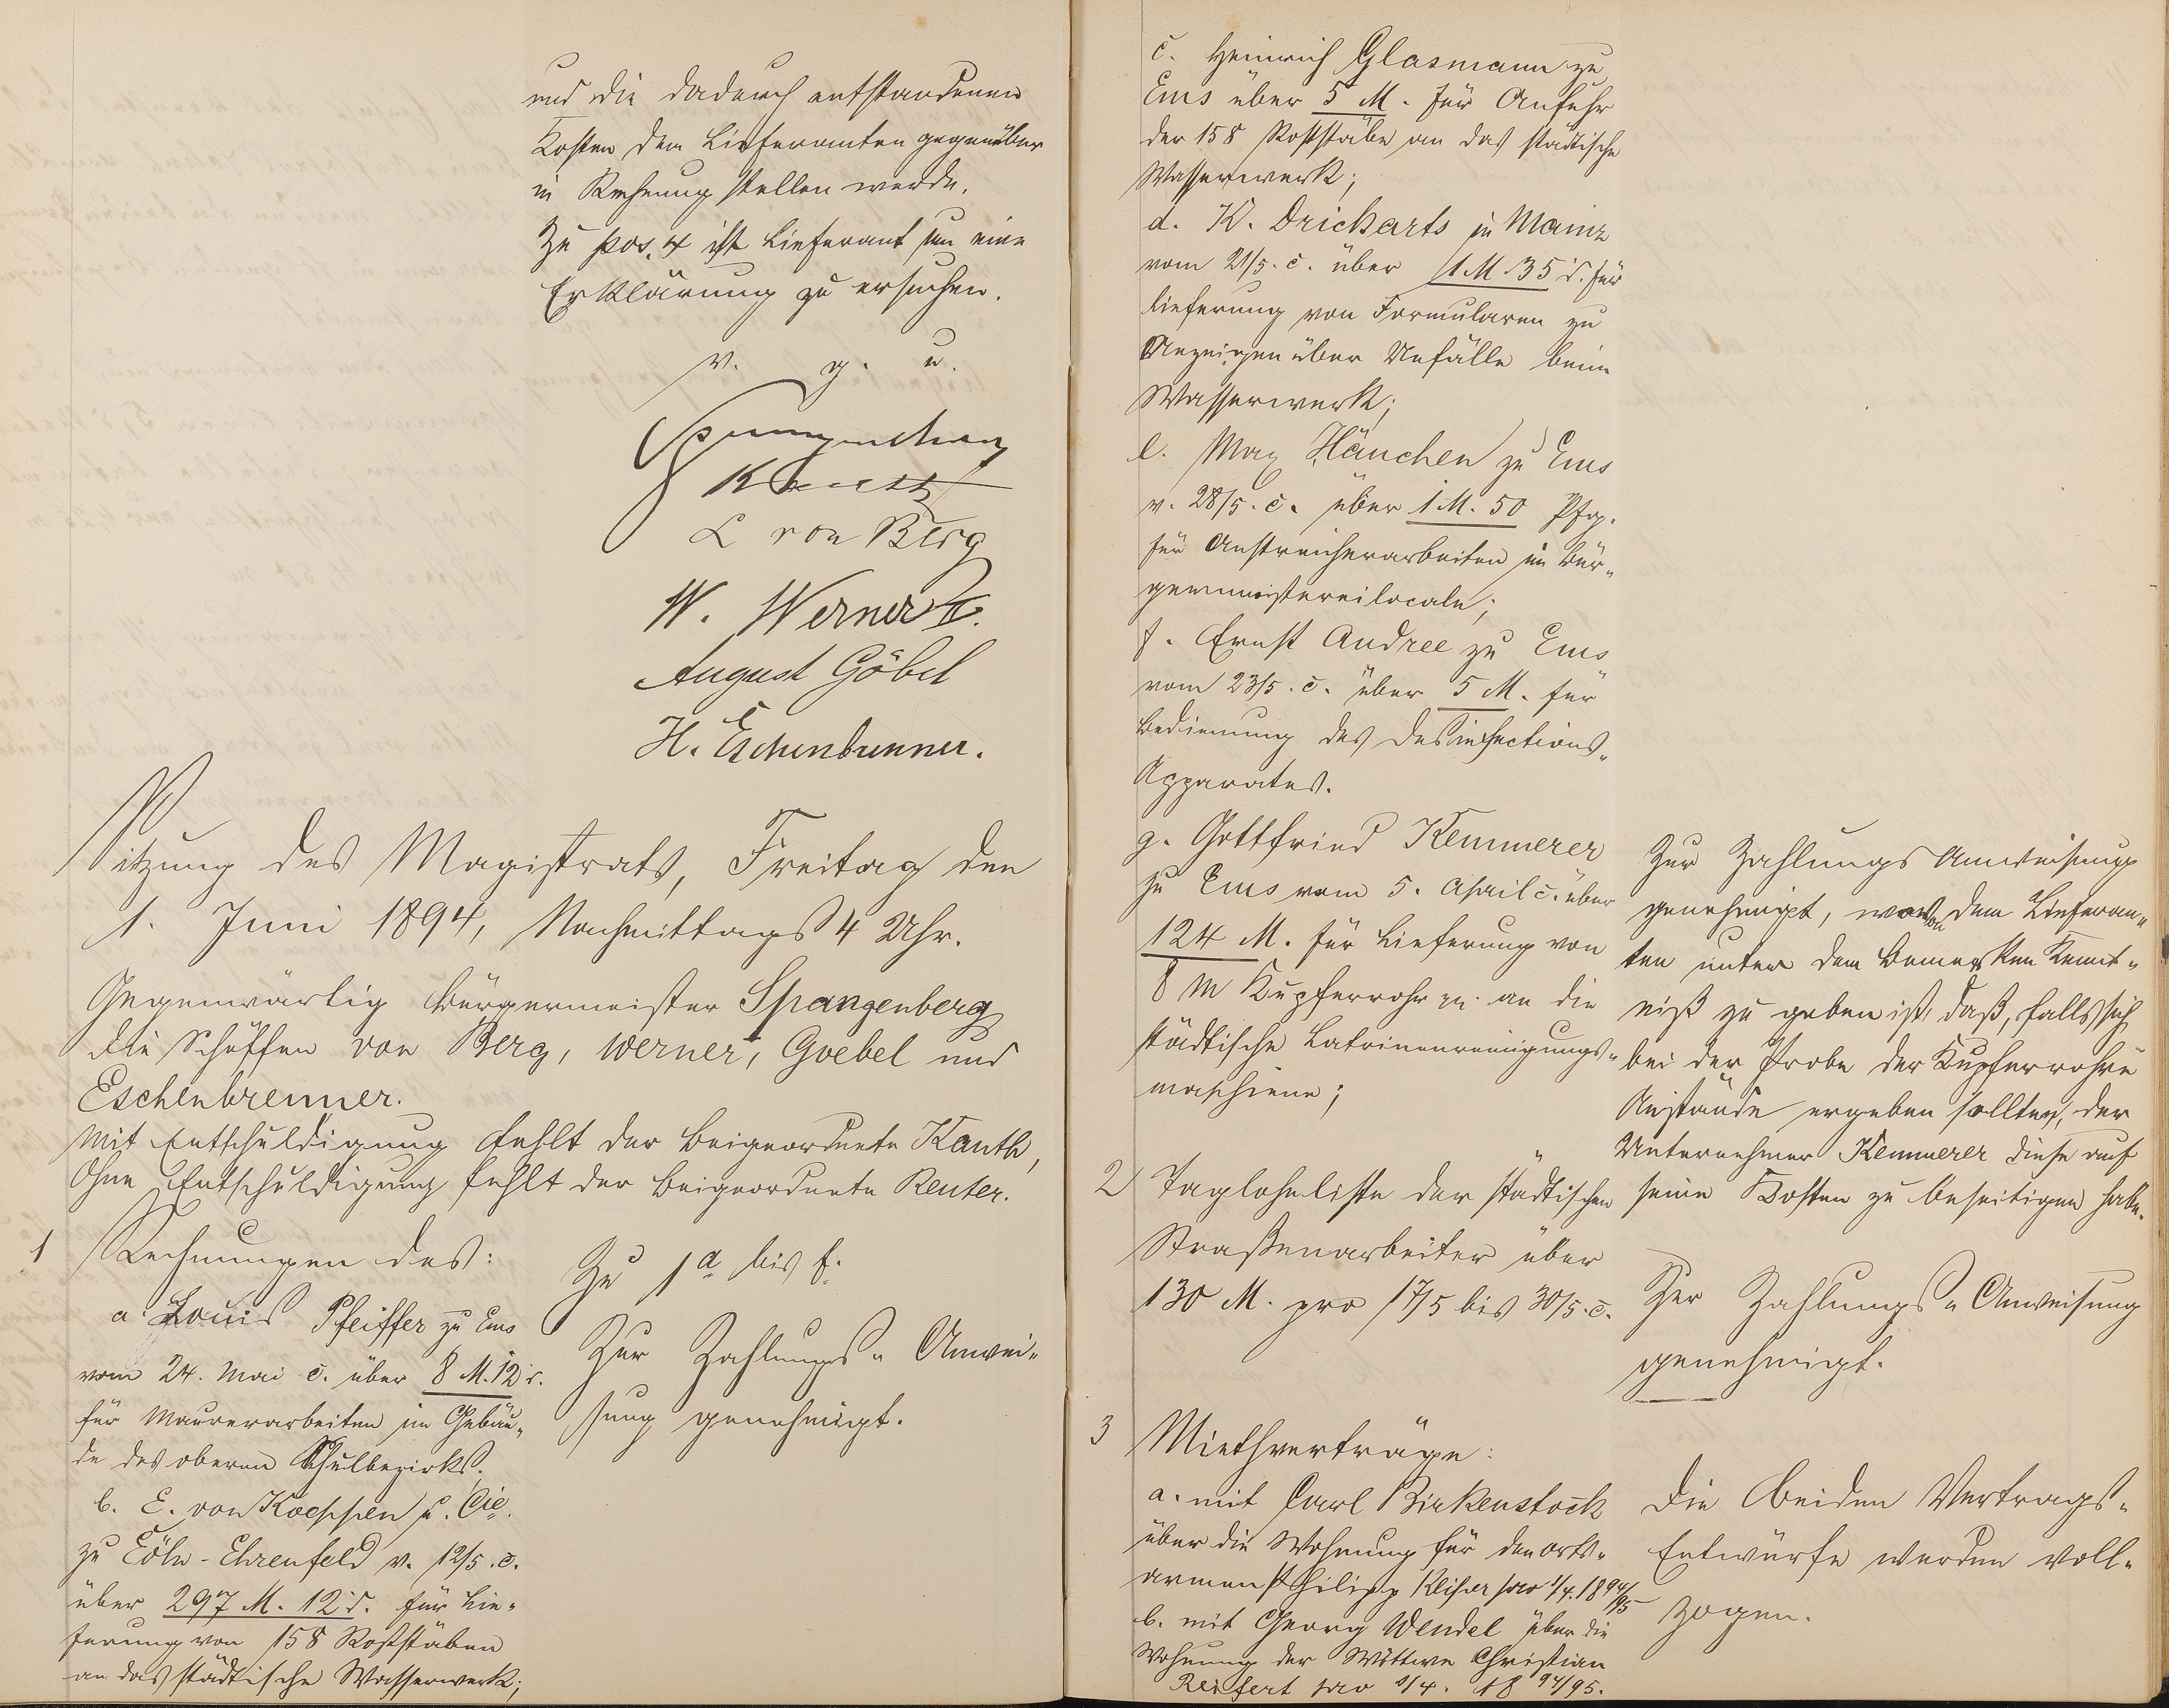 und die dadurch entstandenen
Kosten dem Lieferanten gegenüber
in Rechnung stellen werde.
Zu pos. 4 ist Lieferant um eine
Erklärung zu ersuchen.
v. g. u.
Spangenberg
Kauth
L von Berg
W. Werner
August Göbel
H. Eschenbrenner.
Sitzung des Magistrats, Freitag den
1. Juni 1894, Nachmittags 4 Uhr.
Gegenwärtig Bürgermeister Spangenberg
die Schöffen von Berg, Werner, Goebel und
Eschenbrenner.
Mit Entschuldigung fehlt der Beigeordnete Kauth,
Ohne Entschuldigung fehlt der Beigeordnete Reuter.
1 Rechnungen des:
a. Louis Pfeiffer zu Ems
vom 24. Mai c. über 8 M. 12 ₰.
für Maurerarbeiten im Gebäu-
de des oberen Schulbezirks.
b. E. von Koeppen u. Cie.
zu Cöln-Ehrenfeld v. 12/5. c.
über 297 M. 12 ₰. für Lie-
ferung von 158 Roststäben
an das städtische Wasserwerk;
Zu 1a bis f.
Zur Zahlungs-Anwei-
sung genehmigt.
c. Heinrich Glasmann zu
Ems über 5 M. für Anfuhr
der 158 Roststäbe an das städtische
Wasserwerk;
d. K. Drickarts in Mainz
vom 21/5. c. über 1 M 35 ₰. für
Lieferung von Formularen zu
Anzeigen über Unfälle beim
Wasserwerk;
e. Max Hänchen zu Ems
v. 28/5. c. über 1 M. 50 Pfg.
für Anstreicherarbeiten im Bür-
germeistereilocale;
f. Ernst Andree zu Ems
vom 23/5. c. über 5 M. für
Bedienung des Desinfections-
Apparates.
g. Gottfried Kemmerer
zu Ems vom 5. April c. über
124 M. für Lieferung von
8 m Kupferrohr pp. an die
städtische Latrinenreinigungs-
maschiene;
Zur Zahlungs Anweisung
genehmigt, wovon dem Lieferan-
ten unter dem Bemerken Kennt-
niß zu geben ist, daß, falls sich
bei der Probe der Kupferrohre
Anstände ergeben sollten, der
Unternehmer Kemmerer diese auf
seine Kosten zu beseitigen habe.
2 Taglohnliste der städtischen
Straßenarbeiter über
130 M. pro 17/5 bis 30/5. c.
Zur Zahlungs-Anweisung
genehmigt.
3 Miethverträge:
a. mit Carl Birkenstock
über die Wohnung für den Orts-
armen Philipp pro 1/4. 1894/95
b. mit Georg Wendel über die
Wohnung der Wittwe Christian
Reifert pro 1/4. 1894/95.
Die beiden Vertrags-
Entwürfe werden voll-
zogen.